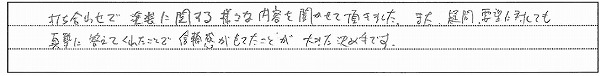 打ち合わせで塗装に関する様々な内容を聞かせて頂きました。また、疑問、要望に対しても
真摯に答えてくれたことで信頼感がもてたことが大きな決め手です。